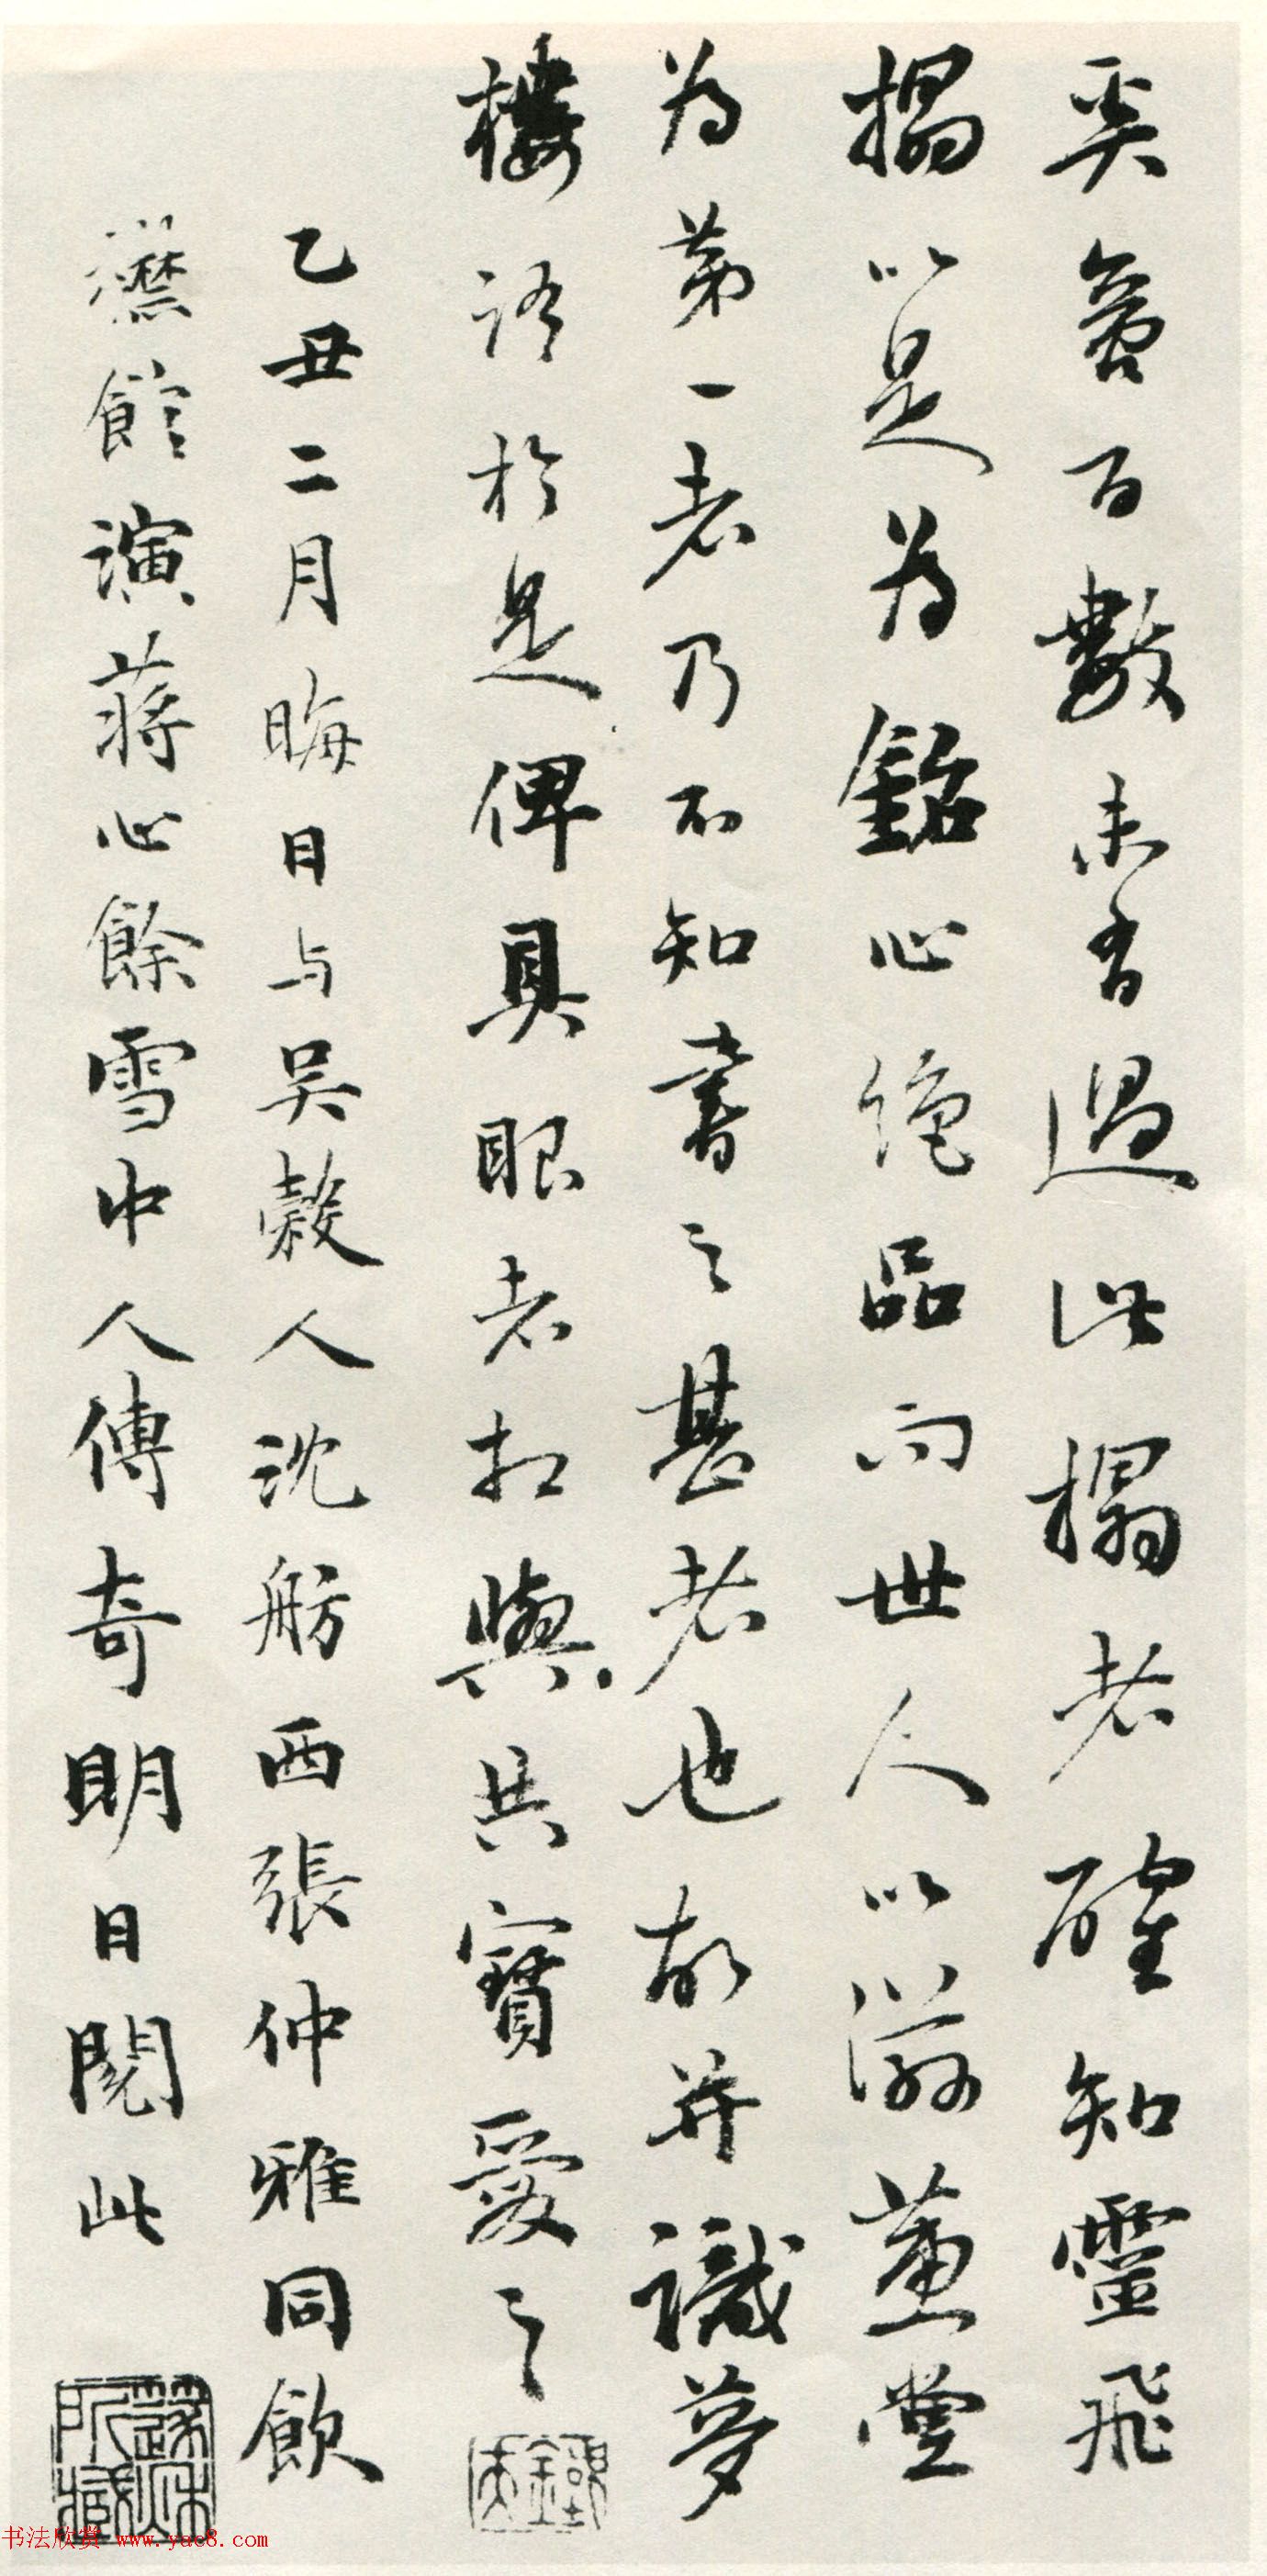 奚啻百數未有過此搨者確知靈飛
搨以是為銘心絕品而世人以滋蕙堂
為第一者乃不知書之甚者也故并識夢
樓語於是俾具眼者相與共寶愛之
乙丑二月晦日与吳穀人沈舫西張仲雅同飲
館演蔣心餘雪中人傳奇明日閱此
所藏
书法欣赏 www.yac8.com